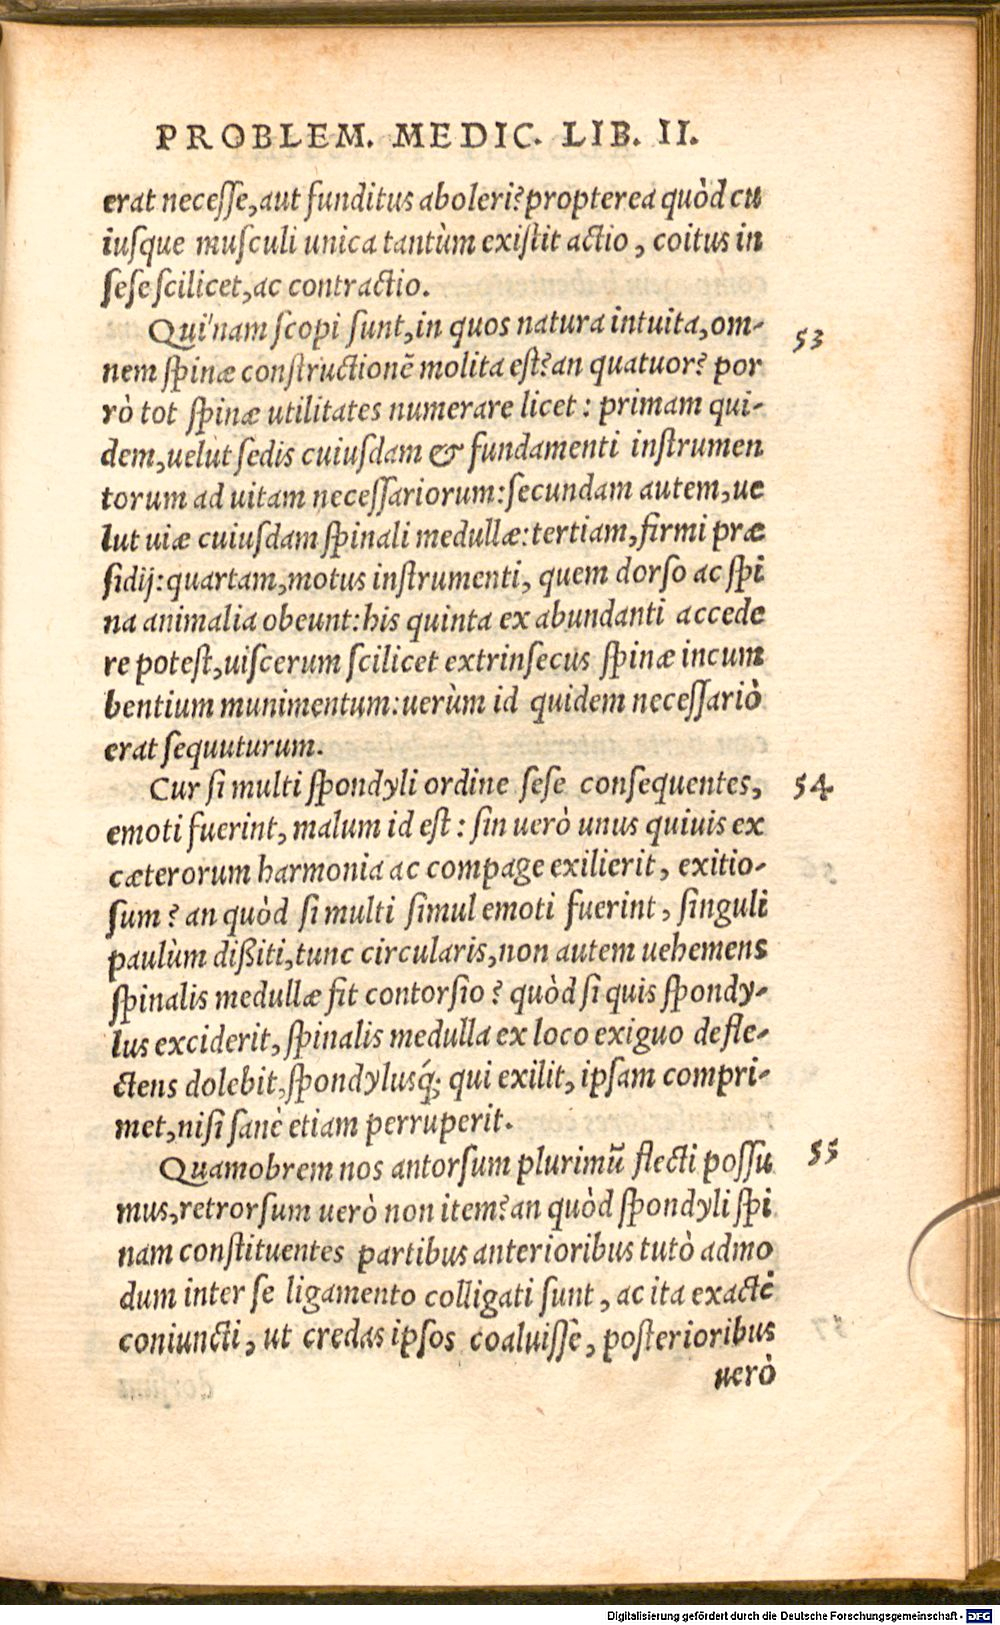 PROBLEM. MEDIC. LIB. II.
erat necesse, aut funditus aboleri? propterea quòd cu
iusque musculi unica tantùm existit actio, coitus in
sese scilicet, ac contractio.
Qui'nam scopi sunt, in quos natura intuita, om- 53
nem spinæ constructionē molita est? an quatuor? por
rò tot spinæ utilitates numerare licet: primam qui-
dem, uelut sedis cuiusdam & fundamenti instrumen
torum ad uitam necessariorum: secundam autem, ue
lut uiæ cuiusdam spinali medullæ: tertiam, firmi præ
sidij: quartam, motus instrumenti, quem dorso ac spi
na animalia obeunt: his quinta ex abundanti accede
re potest, uiscerum scilicet extrinsecus spinæ incum
bentium munimentum: uerùm id quidem necessariò
erat sequuturum.
Cur si multi spondyli ordine sese consequentes, 54
emoti fuerint, malum id est: sin uerò unus quiuis ex
cæterorum harmonia ac compage exilierit, exitio-
sum? an quòd si multi simul emoti fuerint, singuli
paulùm dißiti, tunc circularis, non autem uehemens
spinalis medullæ fit contorsio? quòd si quis spondy-
lus exciderit, spinalis medulla ex loco exiguo defle-
ctens dolebit, spondylusq́; qui exilit, ipsam compri-
met, nisi sanè etiam perruperit.
Quamobrem nos antorsum plurimū flecti possu 55
mus, retrorsum uerò non item? an quòd spondyli spi
nam constituentes partibus anterioribus tutò admo
dum inter se ligamento colligati sunt, ac ita exactè
coniuncti, ut credas ipsos coaluisse, posterioribus
uerò
Digitalisierung gefördert durch die Deutsche Forschungsgemeinschaft - DFG